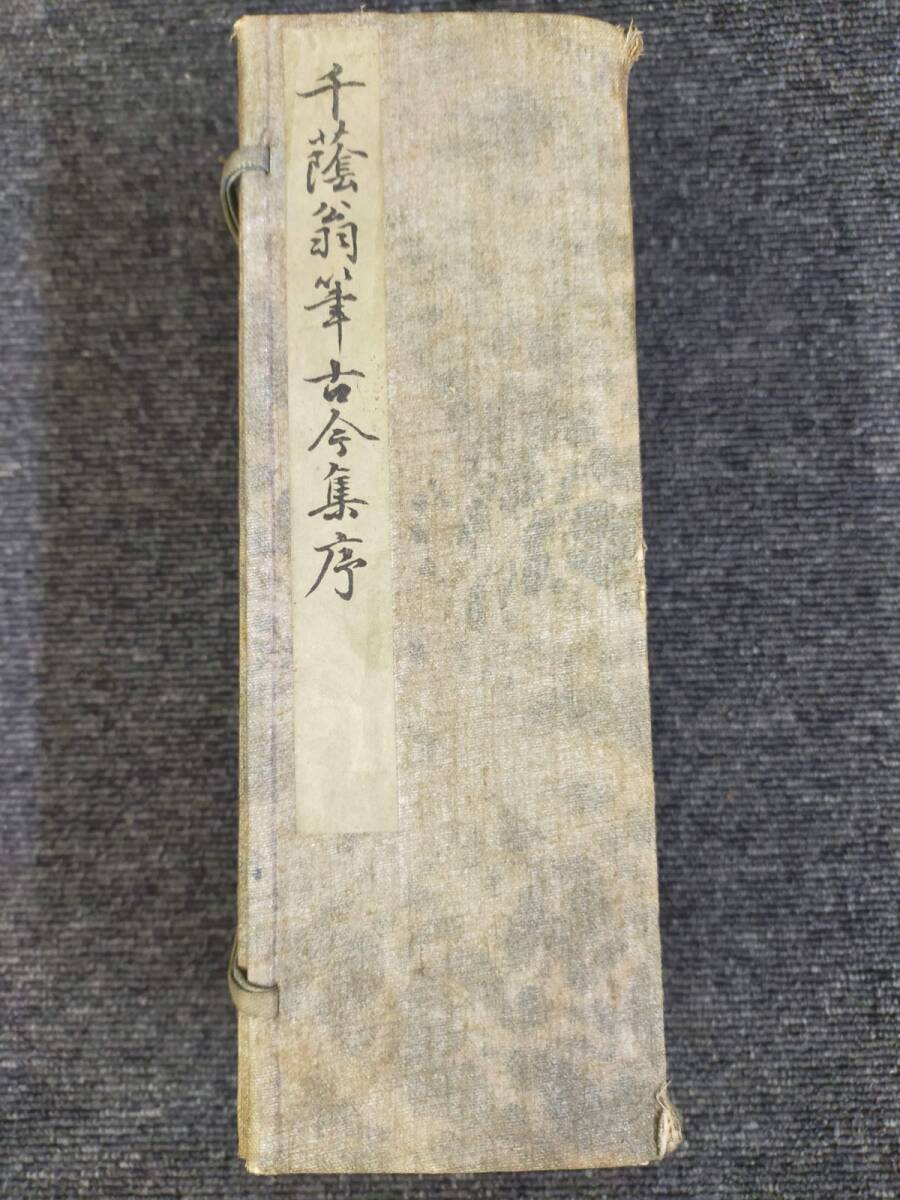 千蔭翁筆古今集序